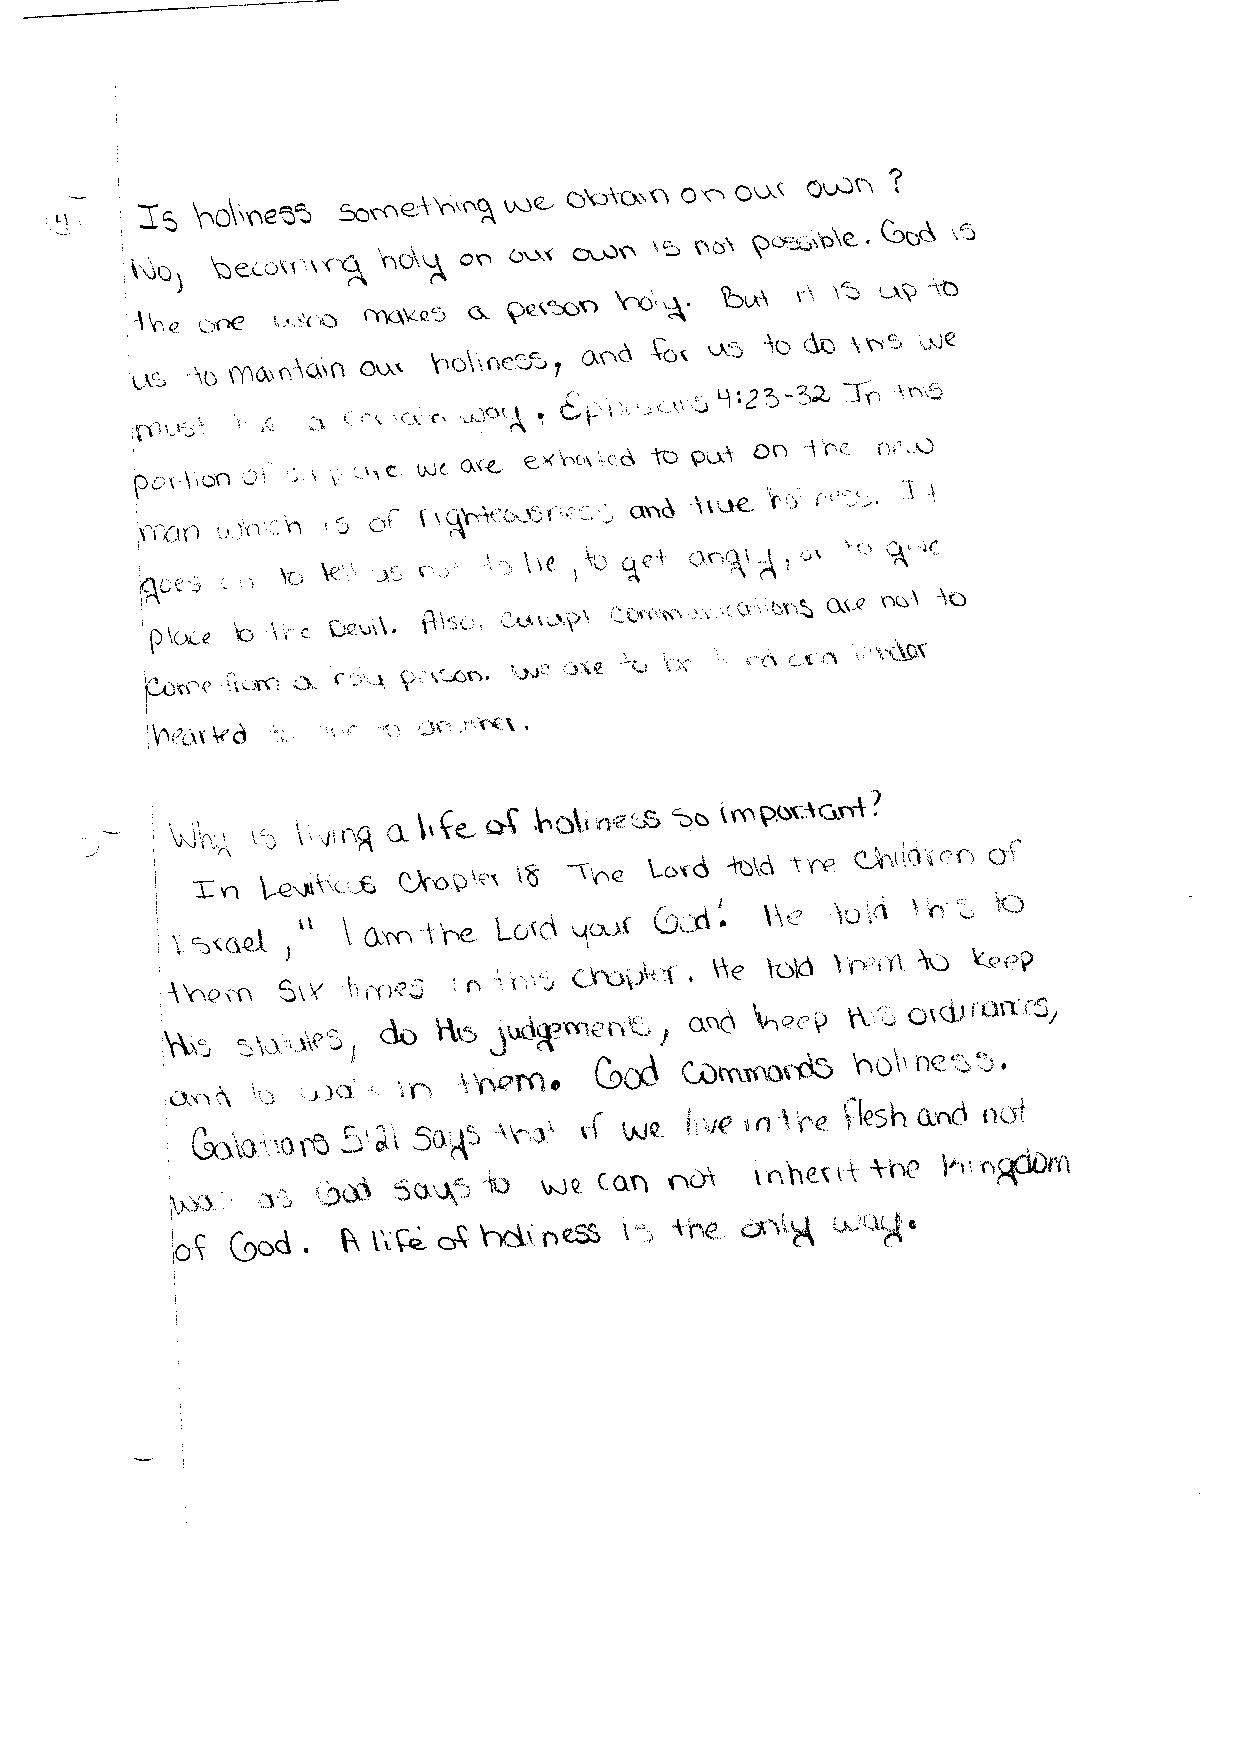 4. Is holiness something we obtain on our own?
No, becoming holy on our own is not possible. God is
the one who makes a person holy. But it is up to
us to maintain our holiness, and for us to do this we
must a certain way. Ephesians 4:23-32 In this
portion of scripture we are exhorted to put on the new
man which is of righteousness and true holiness. It
goes on to tell us not to lie, to get angry, or to give
place to the Devil. Also, currupt communications are not to
come from a holy person. We are to be kind and tender
hearted to one to another.
Why is living a life of holiness so important?
In Leviticus Chapter 18 The Lord told the Children of
Israel, "I am the Lord your God." He told this to
them six times in this chapter. He told them to keep
His statutes, do His judgements, and keep His ordinances,
and to walk in them. God commands holiness.
Galatians 5:21 says that if we live in the flesh and not
walk as God says to we can not inherit the kingdom
of God. A life of holiness is the only way.